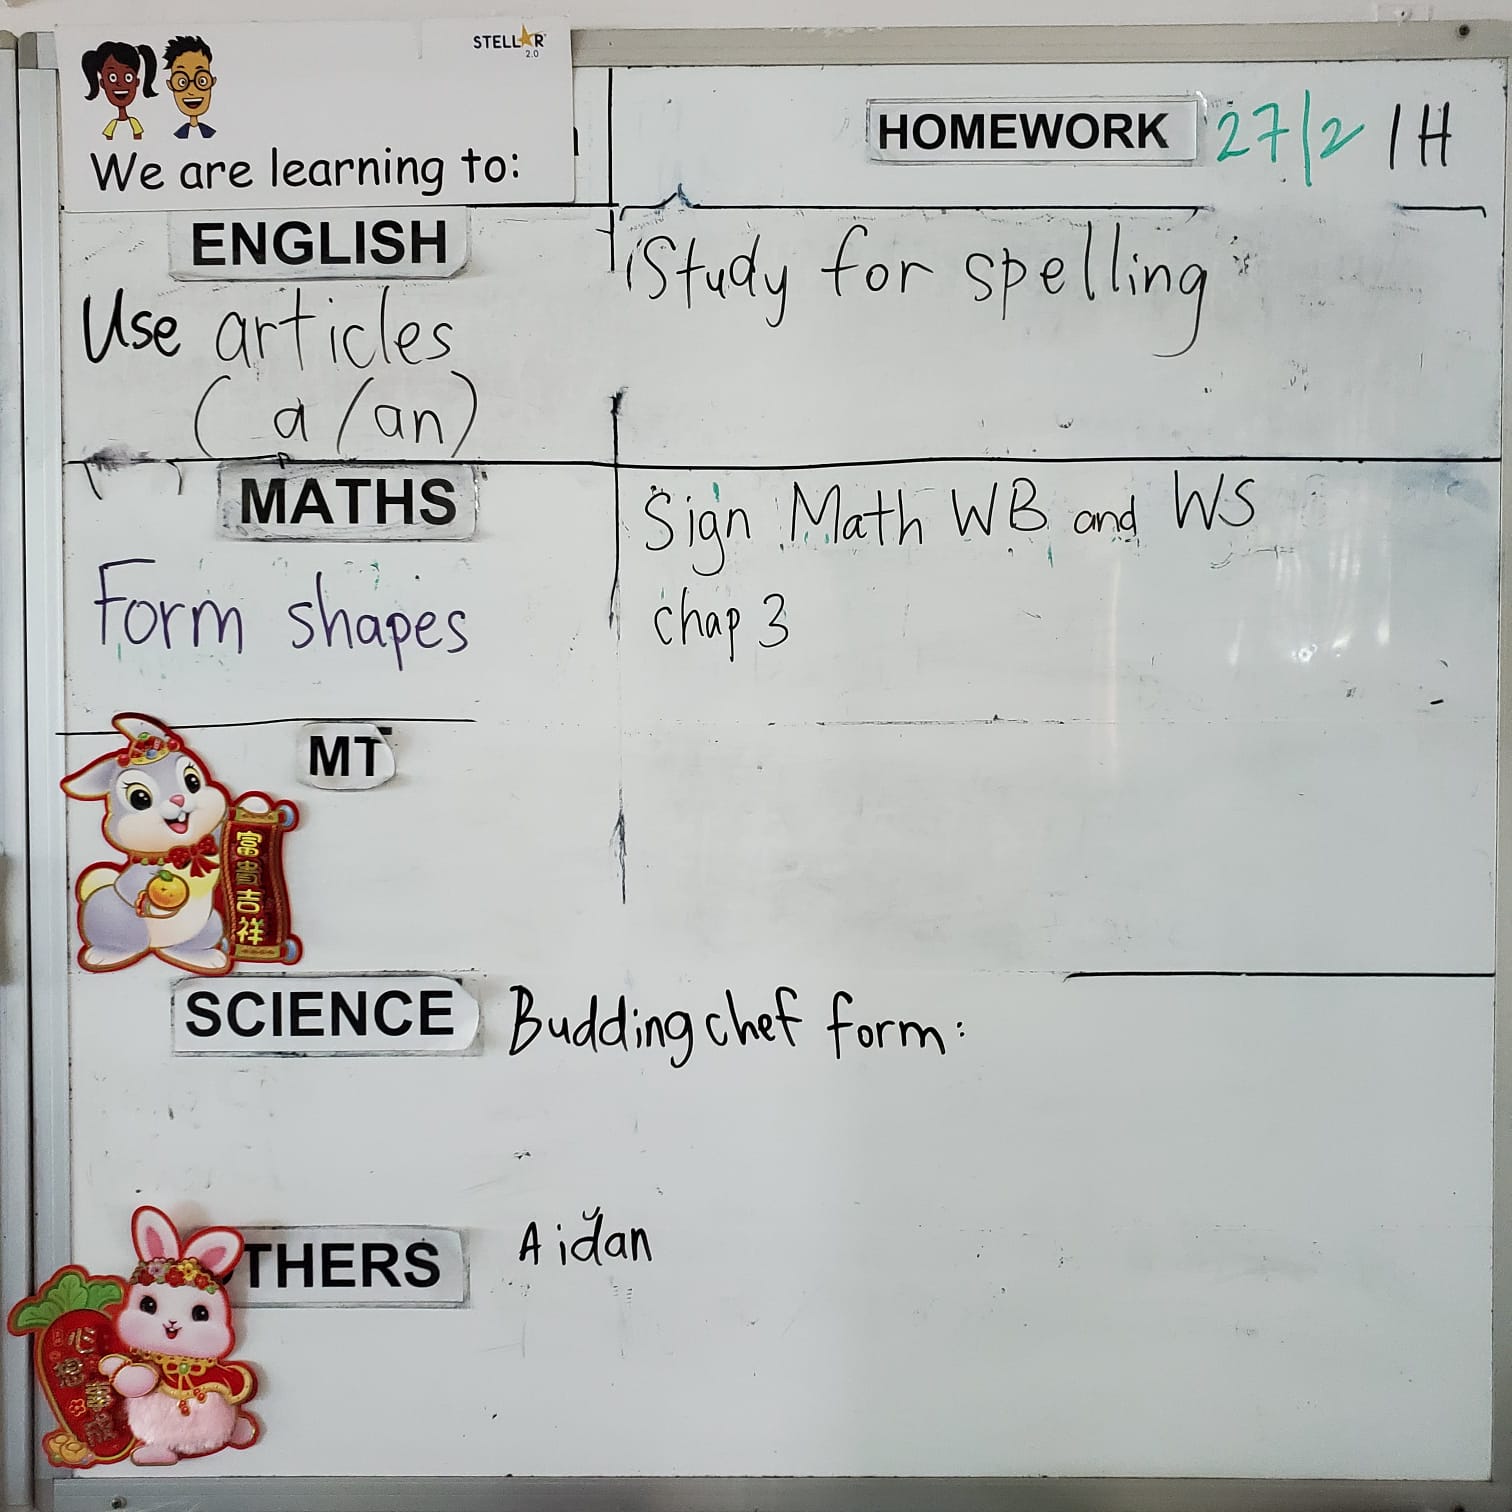 STELLAR
2.0
We are learning to:
HOMEWORK 27/2 1H
ENGLISH
Use articles
(a/an)
Study for spelling
MATHS
Form shapes
Sign Math WB and WS
chap 3
MT
富貴吉祥
SCIENCE
Budding chef form:
THERS
Aidan
心想事成